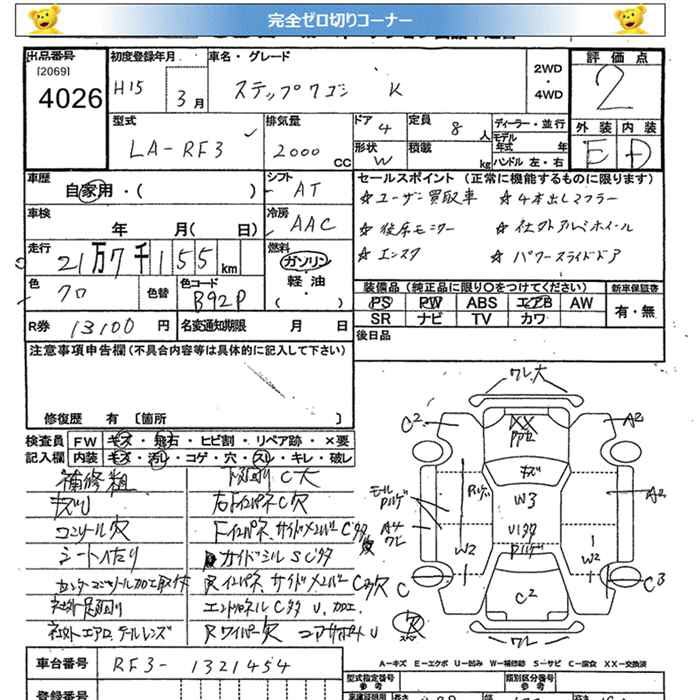 完全ゼロ切りコーナー
出品番号
[2069]
4026
初度登録年月
H15
3月
車名・グレード
ステップワゴン K
2WD
・
4WD
評価点
2
外装 内装
E D
型式
LA-RF3
排気量
2000 CC
ドア 4
形状 W
定員 8 人
積載 kg
ディーラー・並行
モデル
年式 年
ハンドル 左・右
車歴
自家用・( )
シフト
AT
車検
年 月( 日)
冷房
AAC
走行
21万7千155km
燃料
ガソリン
・
軽油
・
( )
色
クロ
色替
色コード
B92P
R券 13100 円
名変通知期限 月 日
セールスポイント (正常に機能するものに限ります)
☆ユーザー買取車 ☆4本出しマフラー
☆後席モニター ☆社外アルミホイール
☆エンスタ ☆パワースライドドア
装備品(純正品に限り○をつけてください)
PS PW ABS エアB AW
SR ナビ TV カワ
新車保証書
有・無
後日品
注意事項申告欄(不具合内容等は具体的に記入して下さい)
修復歴 有〔箇所 〕
検査員 FW キズ・飛石・ヒビ割・リペア跡・×要
記入欄 内装 キズ・汚レ・コゲ・穴・スレ・キレ・破レ
補修粗
下廻り C大
キズU
右F インパネC穴
コンソール穴
シートヘタリ
社外足廻り
社外エアロ、テールレンズ
Rワイパー欠 コアサポートU
ワレ大
C2
A2
XX
キズ
W3
A4
ワレ
A2
W2
W2
C
C3
C2
ワレ
A-キズ E-エクボ U-凹み W-補修跡 S-サビ C-腐食 XX-交換済
車台番号
RF3-1321454
登録番号
型式指定番号
参考
類別区分番号
参考